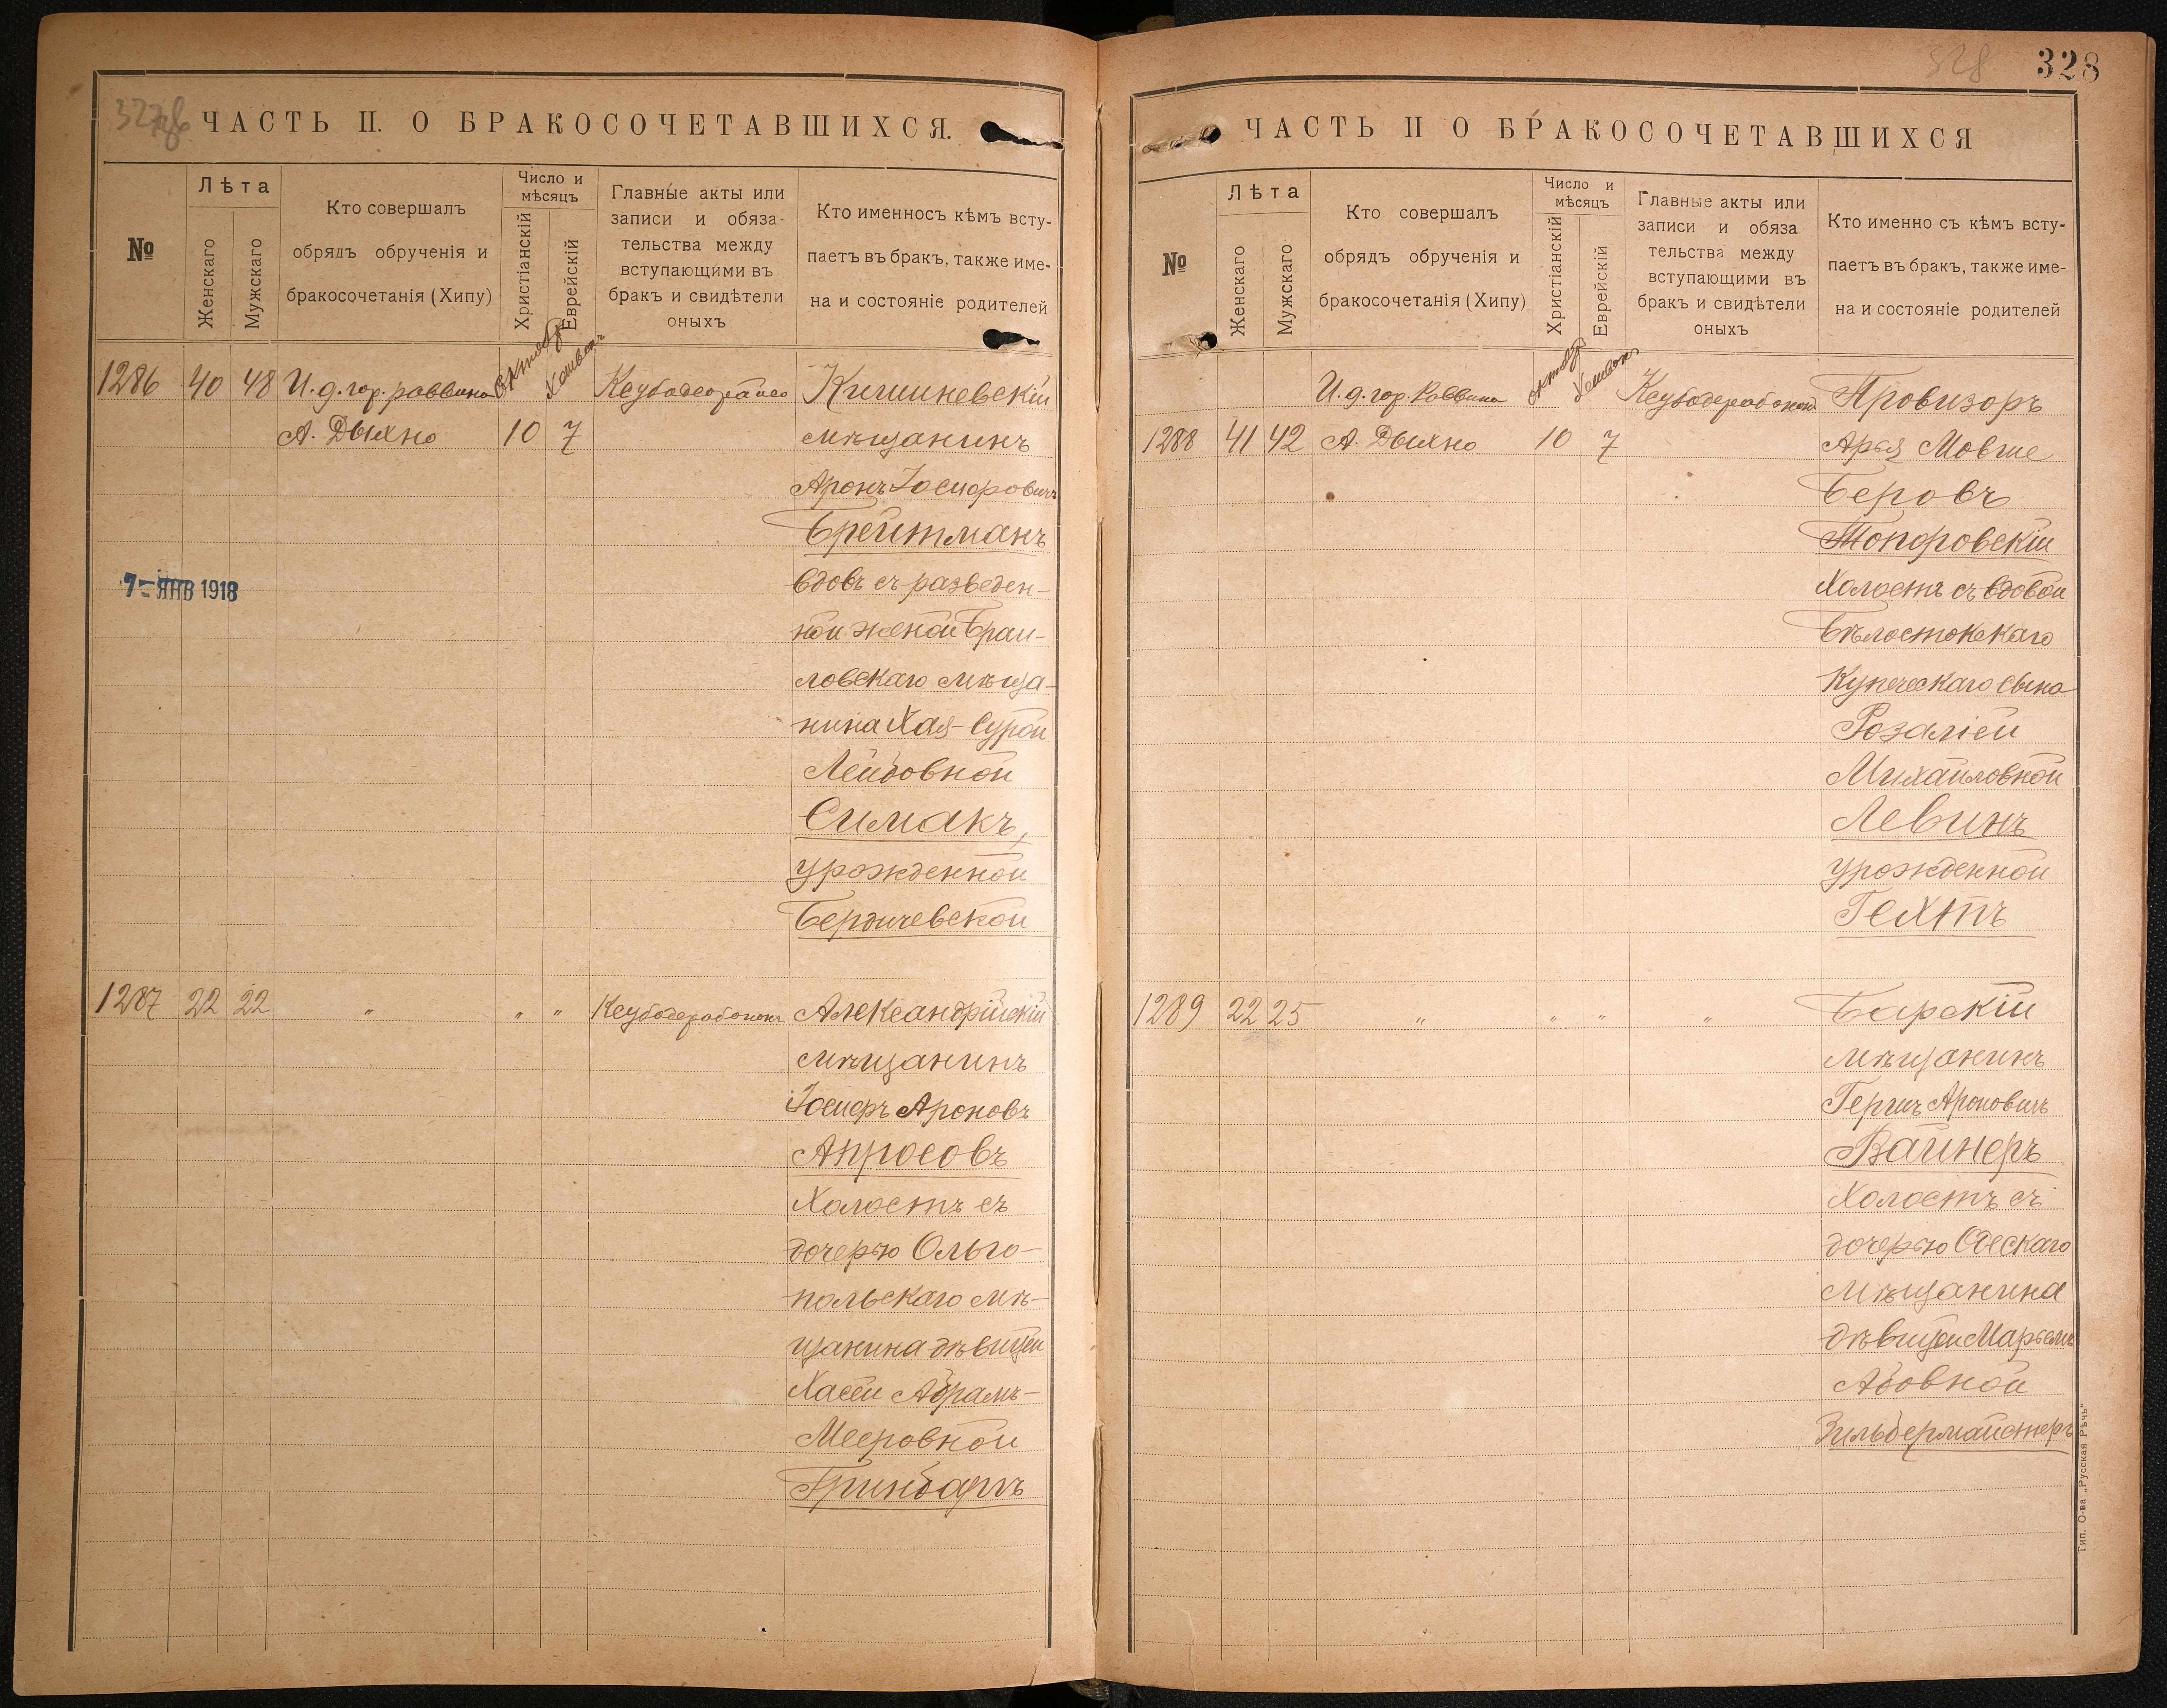 ЧАСТЬ II. О БРАКОСОЧЕТАВШИХСЯ.
№
Лѣта
Женскаго
Мужскаго
Кто совершалъ
обрядъ обрученія и
бракосочетанія (Хипу)
Число и
мѣсяцъ
Христіанскій
Еврейскій
Главные акты или
записи и обяза-
тельства между
вступающими въ
бракъ и свидѣтели
оныхъ
Кто именносъ кѣмъ всту-
паетъ въ бракъ, также име-
на и состояніе родителей
1286 40 48 И. д. гор. раввина Кишиневскій
А. Дыхно 10 7 мѣщанинъ
Аронъ Іосифовичъ
Брейтманъ
7 - ЯНВ 1918
вдовъ съ разведен-
ной женой Браи-
ловскаго мѣща-
нина Хая-Сурой
Лейбовной
Симакъ,
урожденной
Бердичевской
1287 22 22 " " " Александрійскій
мѣщанинъ
Іосифъ Ароновъ
Апросовъ
Холостъ съ
дочерью Ольго-
польскаго мѣ-
щанина дѣвицей
Хасей Абрамъ-
Мееровной
Гринбаргъ
328
328
ЧАСТЬ II О БРАКОСОЧЕТАВШИХСЯ
№
Лѣта
Женскаго
Мужскаго
Кто совершалъ
обрядъ обрученія и
бракосочетанія (Хипу)
Число и
мѣсяцъ
Христіанскій
Еврейскій
Главные акты или
записи и обяза-
тельства между
вступающими въ
бракъ и свидѣтели
оныхъ
Кто именно съ кѣмъ всту-
паетъ въ бракъ, также име-
на и состояніе родителей
И. д. гор. Раввина Провизоръ
1288 41 42 А. Дыхно 10 7 Арья Мовше
Беровъ
Топоровскій
Холостъ съ вдовой
Бѣлостокскаго
Купеческаго сына
Розаліей
Михайловной
Левинъ
урожденной
Гехтъ
1289 22 25 " " " " Барскій
мѣщанинъ
Гершъ Ароновичъ
Вайнеръ
Холостъ съ
дочерью Одескаго
мѣщанина
дѣвицей Марьемъ
Абовной
Зильбермайстеръ
Тип. О-ва „Русская Рѣчь"